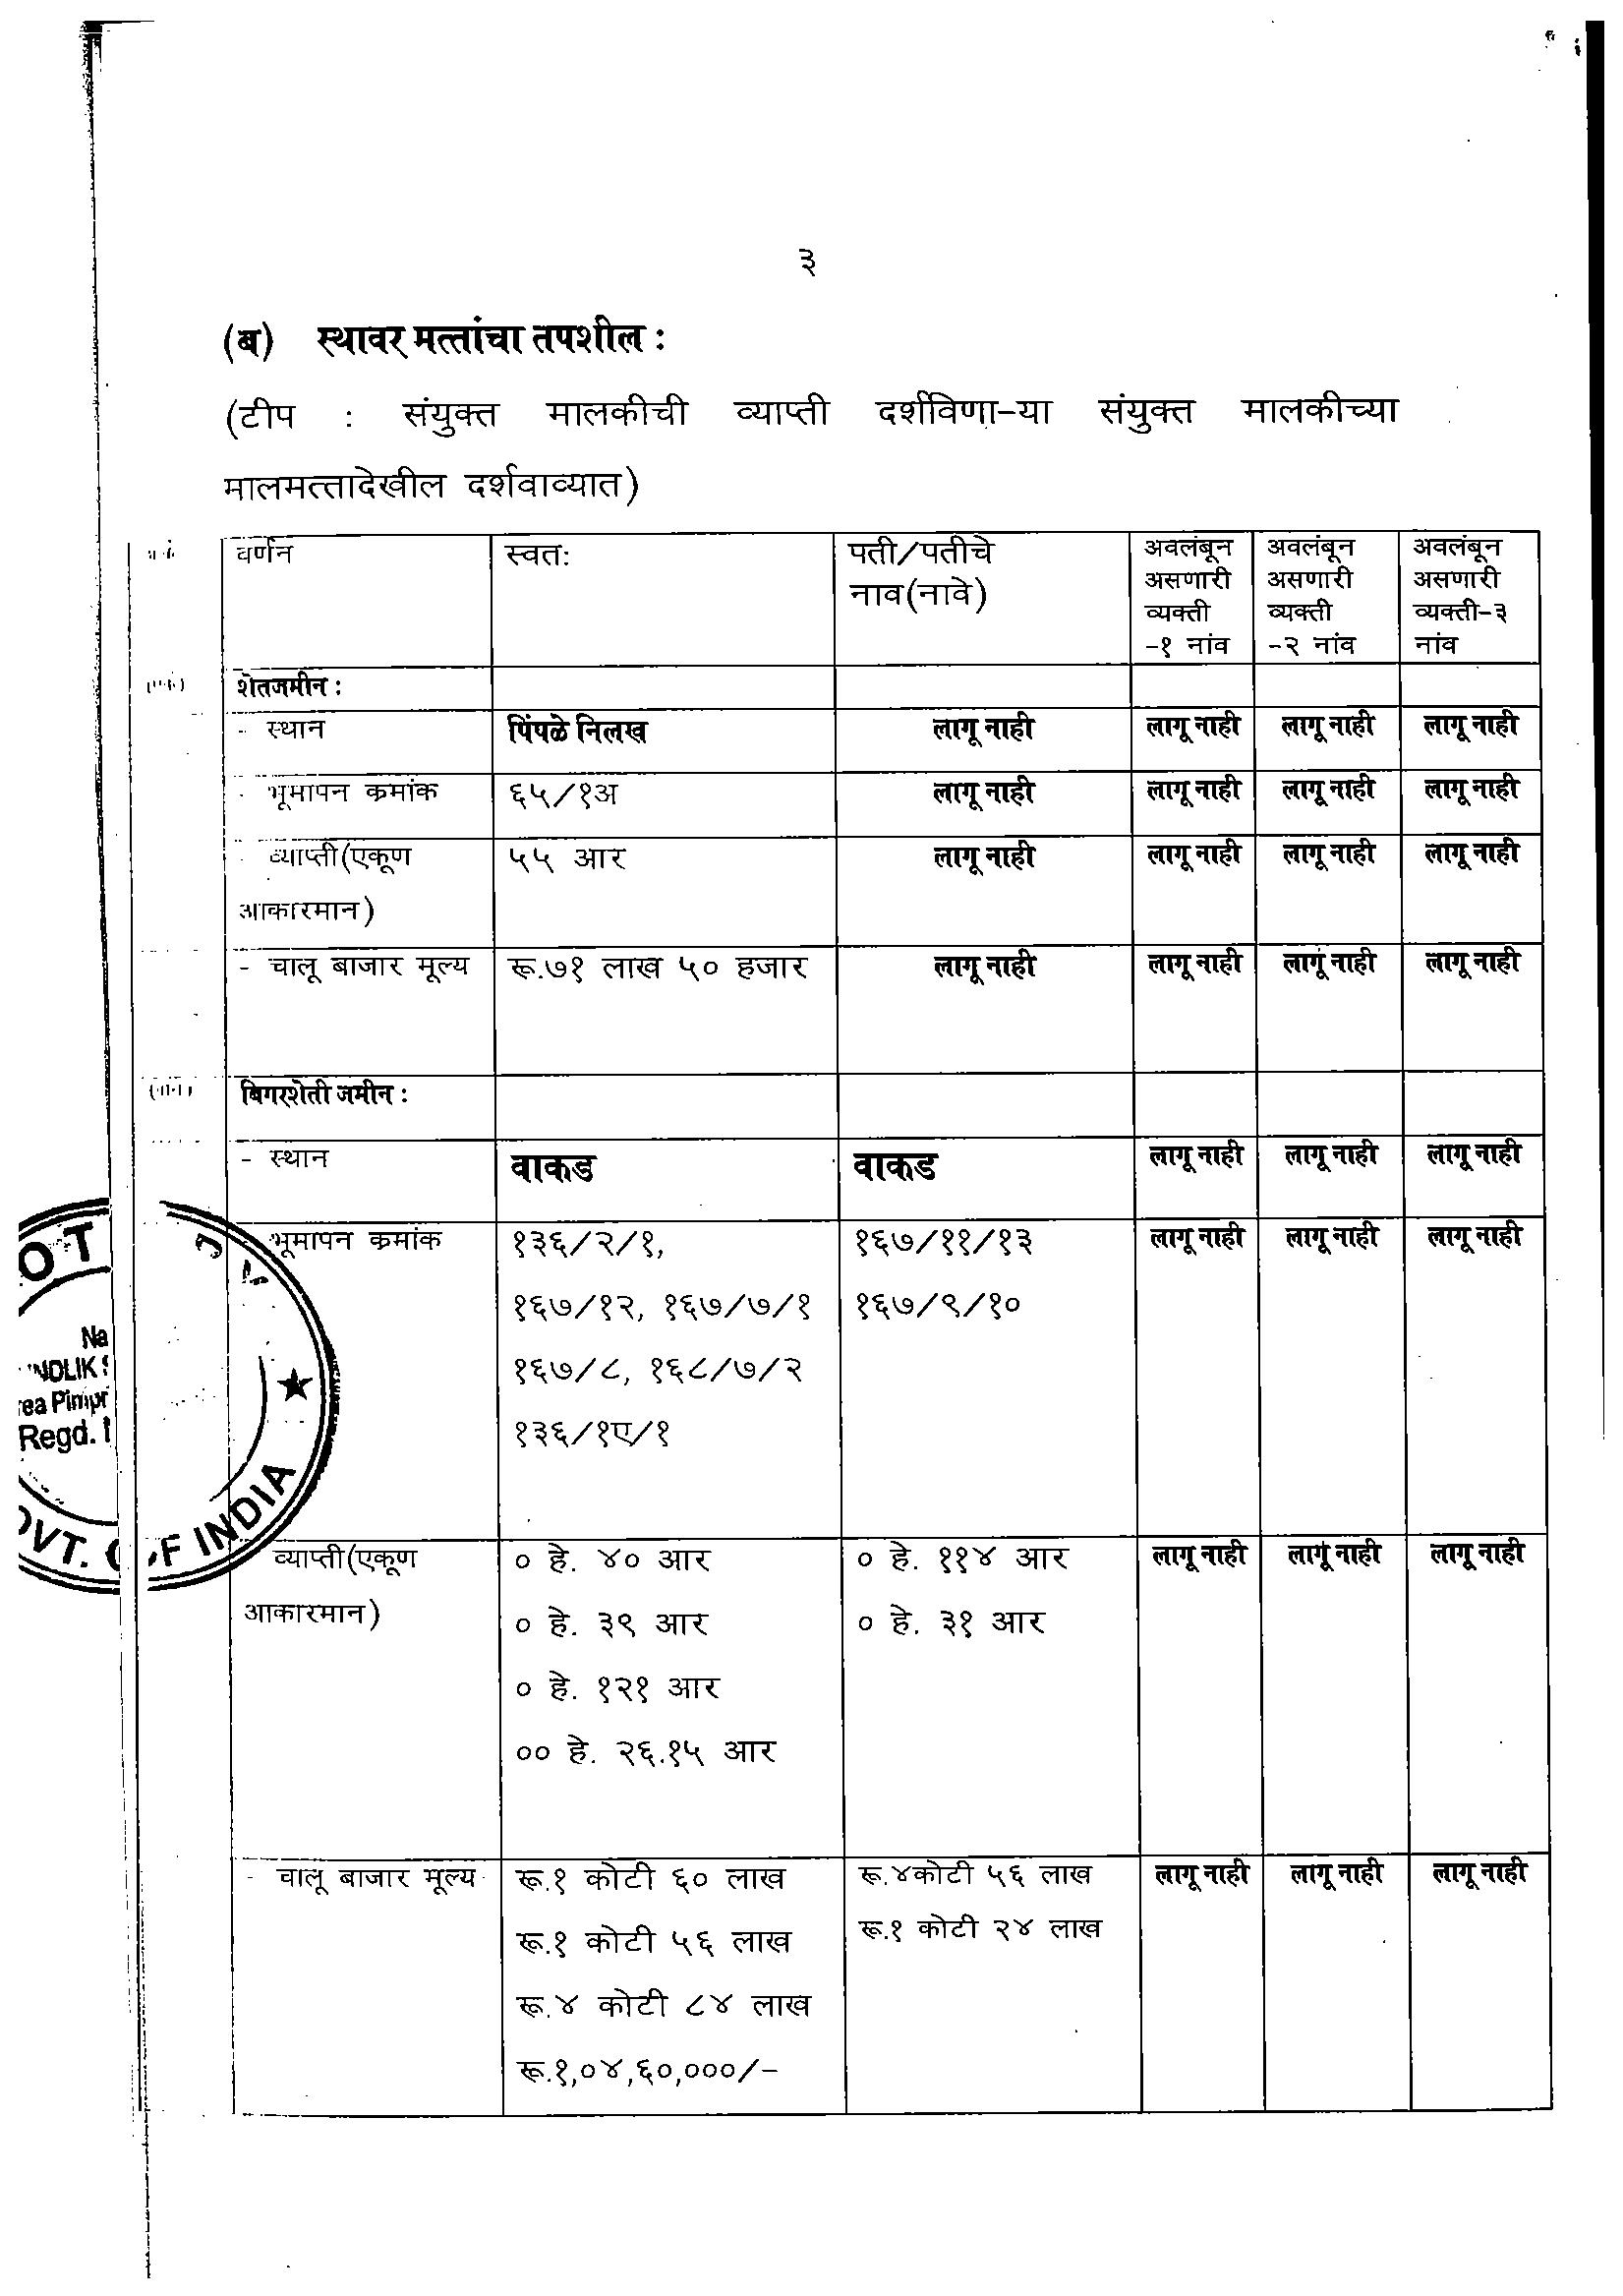 ३
(ब) स्थावर मत्तांचा तपशील :
(टीप : संयुक्त मालकीची व्याप्ती दर्शविणा-या संयुक्त मालकीच्या
मालमत्तादेखील दर्शवाव्यात)
वर्णन स्वत: पती/पतीचे नाव(नावे) अवलंबून असणारी व्यक्ती -१ नांव अवलंबून असणारी व्यक्ती -२ नांव अवलंबून असणारी व्यक्ती-३ नांव
शेतजमीन :
- स्थान पिंपळे निलख लागू नाही लागू नाही लागू नाही लागू नाही
- भूमापन क्रमांक ६५/१अ लागू नाही लागू नाही लागू नाही लागू नाही
- व्याप्ती(एकूण ५५ आर लागू नाही लागू नाही लागू नाही लागू नाही
आकारमान)
- चालू बाजार मूल्य रू.७१ लाख ५० हजार लागू नाही लागू नाही लागू नाही लागू नाही
बिगरशेती जमीन :
- स्थान वाकड वाकड लागू नाही लागू नाही लागू नाही
भूमापन क्रमांक १३६/२/१, १६७/११/१३ लागू नाही लागू नाही लागू नाही
१६७/१२, १६७/७/१ १६७/९/१०
१६७/८, १६८/७/२
१३६/१ए/१
व्याप्ती(एकूण ० हे. ४० आर ० हे. ११४ आर लागू नाही लागू नाही लागू नाही
आकारमान) ० हे. ३९ आर ० हे. ३१ आर
० हे. १२१ आर
०० हे. २६.१५ आर
- चालू बाजार मूल्य रू.१ कोटी ६० लाख रू.४कोटी ५६ लाख लागू नाही लागू नाही लागू नाही
रू.१ कोटी ५६ लाख रू.१ कोटी २४ लाख
रू.४ कोटी ८४ लाख
रू.१,०४,६०,०००/-
OT
Na
NDLIK S
rea Pimpr
Regd.
OVT. OF INDIA